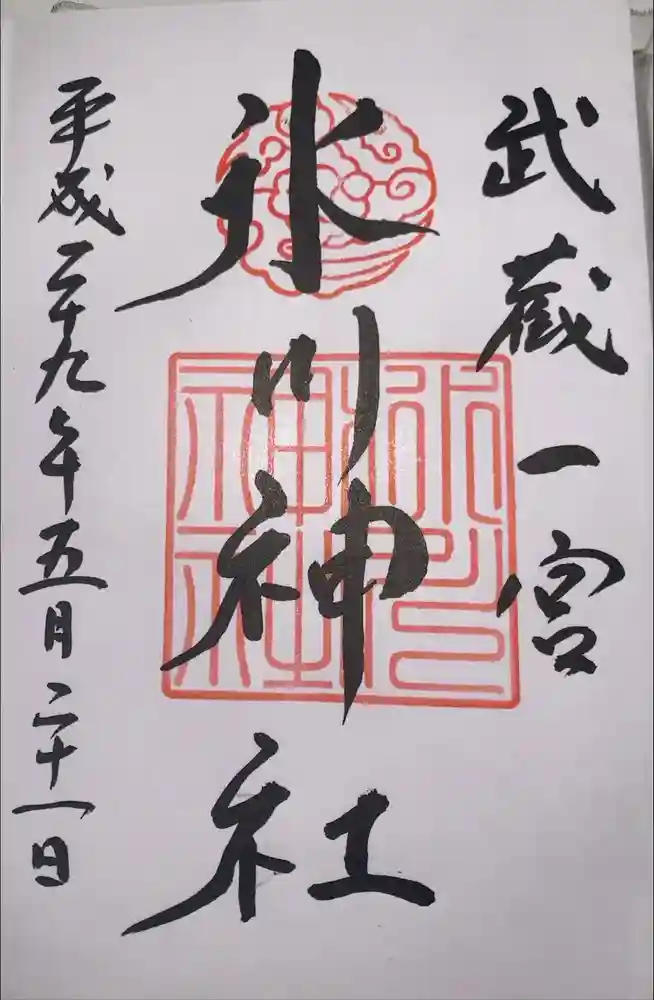 武蔵一宮
氷川神社
平成二十九年五月二十一日
氷川
神社